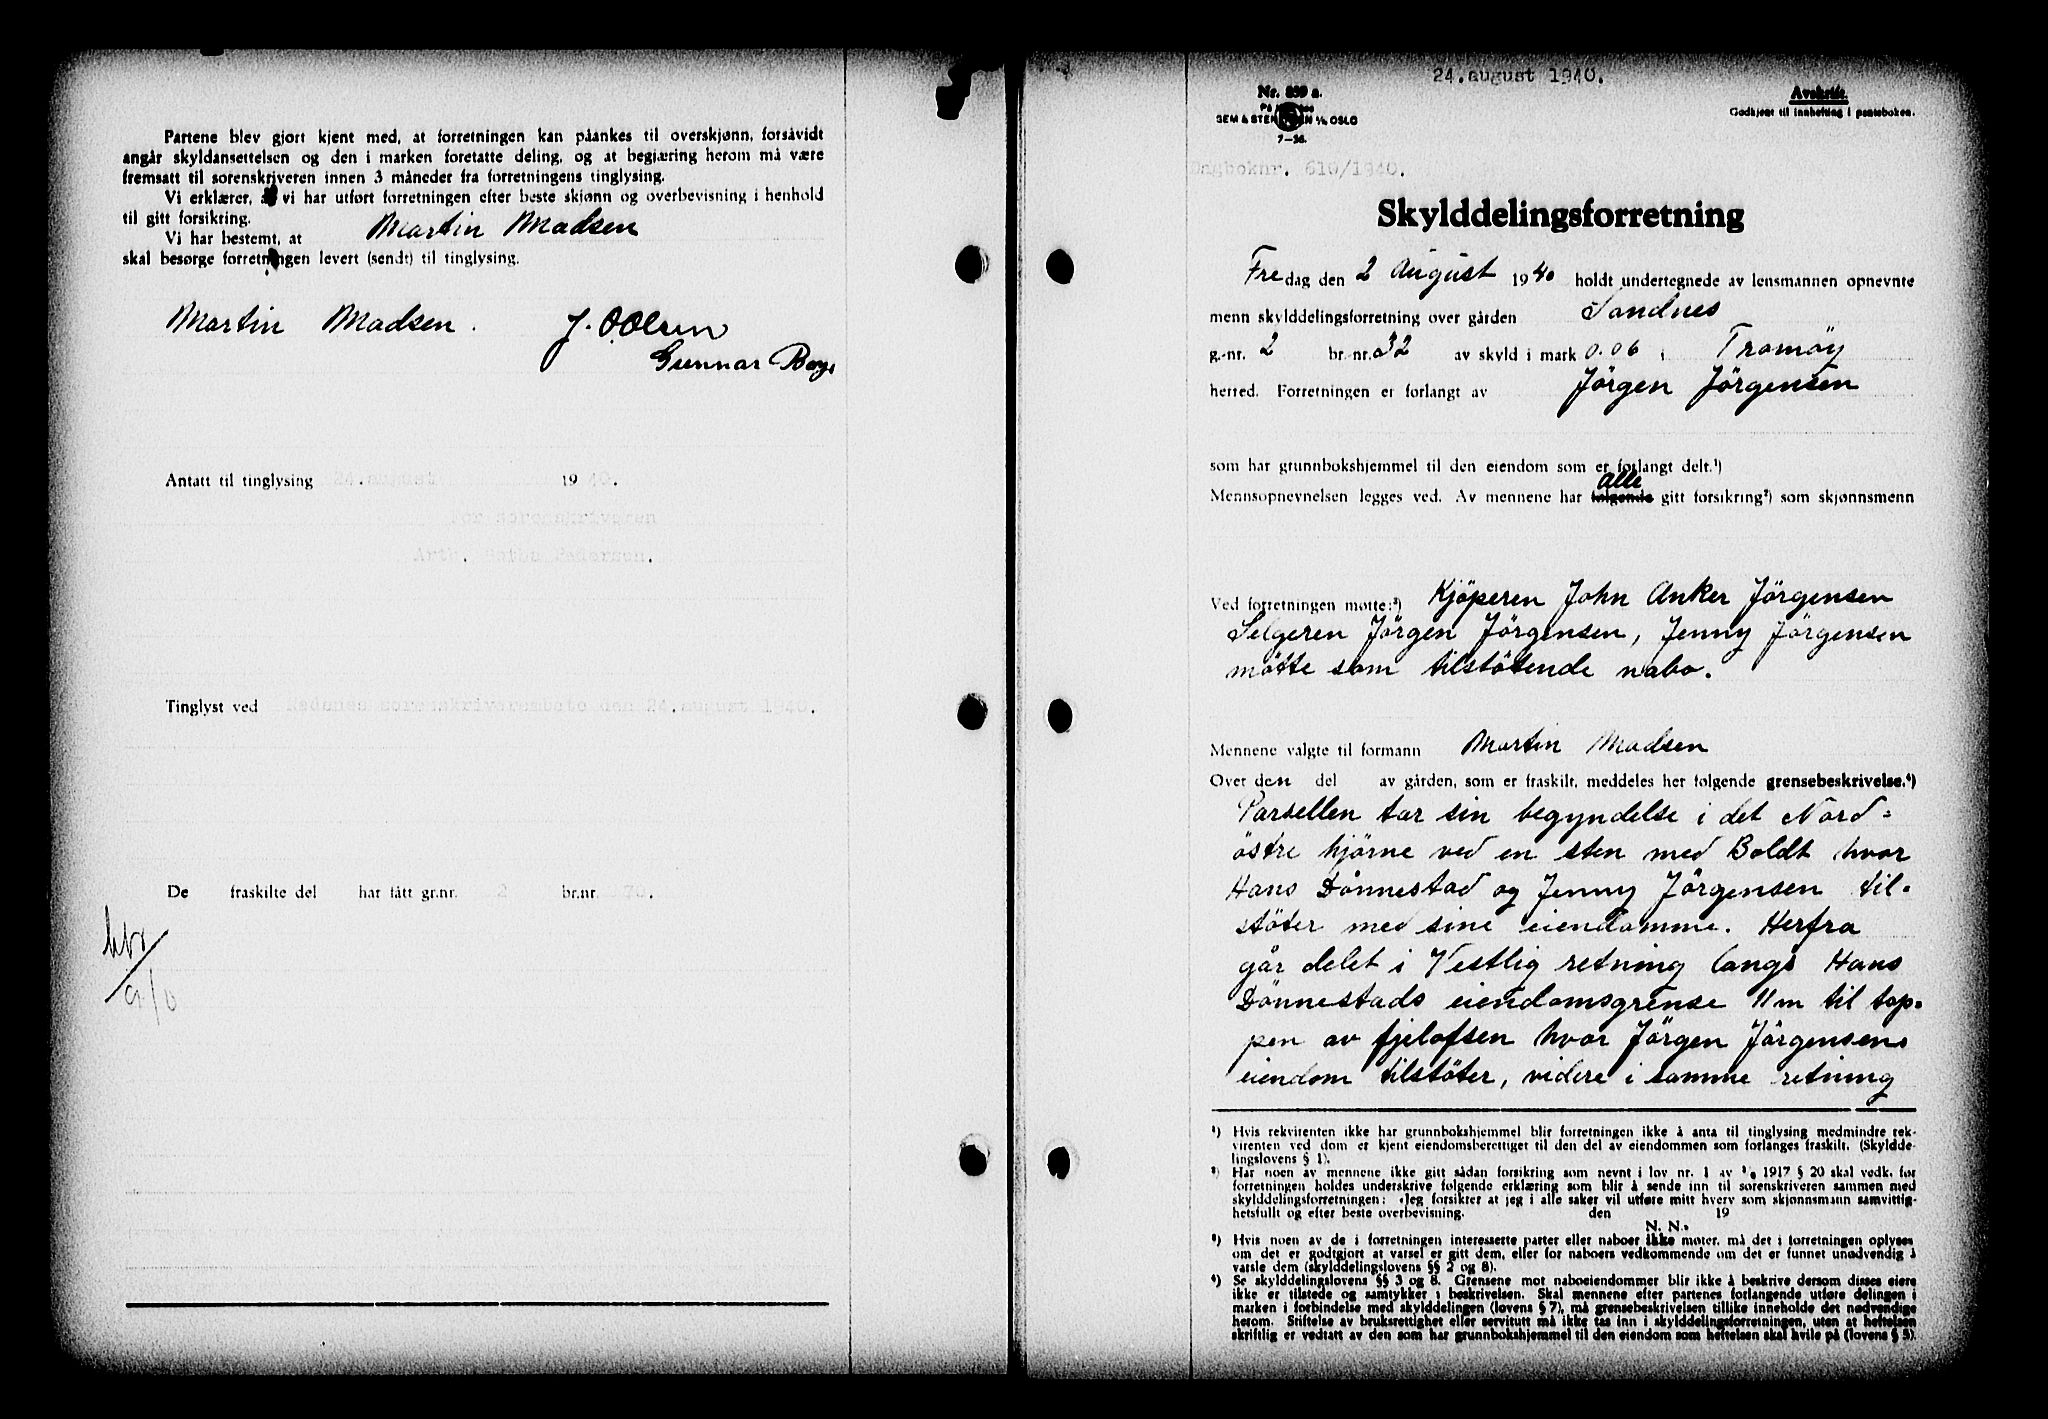 Partene blev gjort kjent med, at forretningen kan påankes til overskjønn, forsåvidt
angår skyldansettelsen og den i marken foretatte deling, og at begjæring herom må være
fremsatt til sorenskriveren innen 3 måneder fra forretningens tinglysing.
Vi erklærer, at vi har utført forretningen efter beste skjønn og overbevisning i henhold
til gitt forsikring.
Vi har bestemt, at Martin Madsen
skal besørge forretningen levert (sendt) til tinglysing.
Martin Madsen. J. O. Olsen
Gunnar
Antatt til tinglysing 24. august 1940.
For sorenskriveren
Pedersen.
Tinglyst ved Nedenes sorenskriverembete den 24. august 1940.
De fraskilte del har fått gr.nr. 2 br.nr. 70.
24. august 1940.
Nr. 859 a.
SEM & STENERSEN A/S OSLO
7-36.
Avskrift.
Godkjent til innhefting i panteboken.
Dagboknr. 610/1940.
Skylddelingsforretning
Fredag den 2 August 1940 holdt undertegnede av lensmannen opnevnte
menn skylddelingsforretning over gården Sandnes
g.-nr. 2 br.-nr. 32 av skyld i mark 0.06 i Tromøy
herred. Forretningen er forlangt av Jörgen Jörgensen
som har grunnbokshjemmel til den eiendom som er forlangt delt.¹)
alle
Mennsopnevnelsen legges ved. Av mennene har følgende gitt forsikring²) som skjønnsmenn
Ved forretningen møtte:³) Kjöperen John Anker Jörgensen
Selgeren Jörgen Jörgensen, Jenny Jörgensen
mötte som tilstötende nabo.
Mennene valgte til formann Martin Madsen
Over den del av gården, som er fraskilt, meddeles her følgende grensebeskrivelse.⁴)
Parsellen tar sin begyndelse i det Nord=
östre hjörne ved en sten med Boldt hvor
Hans Dönnestad og Jenny Jörgensen til-
stöter med sine eiendomme. Herfra
går delet i Vestlig retning langs Hans
Dönnestads eiendomsgrense 11 m til top-
pen av fjelofsen hvor Jörgen Jörgensens
eiendom tilstöter, videre i samme retning
¹) Hvis rekvirenten ikke har grunnbokshjemmel blir forretningen ikke å anta til tinglysing medmindre rek-
virenten ved dom er kjent eiendomsberettiget til den del av eiendommen som forlanges fraskilt. (Skyldde-
lingslovens § 1).
²) Har noen av mennene ikke gitt sådan forsikring som nevnt i lov nr. 1 av 1917 § 20 skal vedk. før
forretningen holdes underskrive følgende erklæring som blir å sende inn til sorenskriveren sammen med
skylddelingsforretningen: „Jeg forsikrer at jeg i alle saker vil utføre mitt hverv som skjønnsmann samvittig-
hetsfullt og efter beste overbevisning. den 19
N. N.“
³) Hvis noen av de i forretningen interesserte parter eller naboer ikke møter, må det i forretningen oplyses
om det er godtgjort at varsel er gitt dem, eller for naboers vedkommende om det er funnet unødvendig å
varsle dem (skylddelingslovens §§ 2 og 8).
⁴) Se skylddelingslovens §§ 3 og 8. Grensene mot naboeiendommer blir ikke å beskrive dersom disses eiere
ikke er tilstede og samtykker i beskrivelsen. Skal mennene efter partenes forlangende utføre delingen i
marken i forbindelse med skylddelingen (lovens § 7), må grensebeskrivelsen tillike inneholde det nødvendige
herom. Stiftelse av bruksrettighet eller servitutt må ikke tas inn i skylddelingsforretningen, uten at heftelsen
skriftlig er vedtatt av den som har grunnbokshjemmel til den eiendom som heftelsen skal hvile på (lovens § 5).